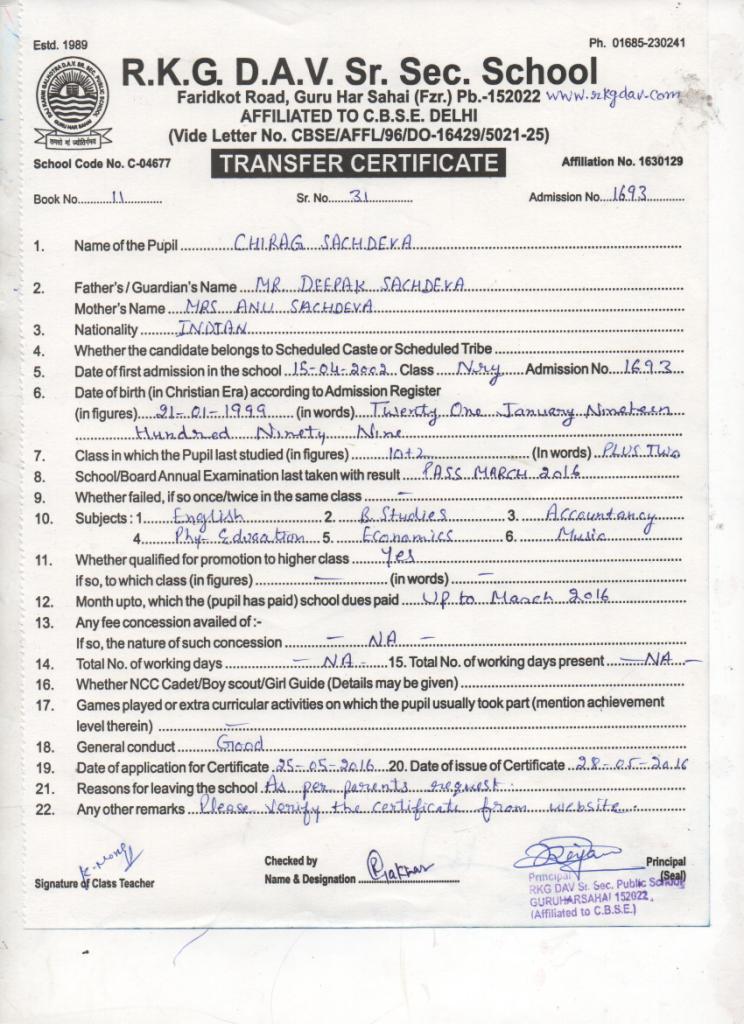 Estd. 1989
Ph. 01685-230241
R.K.G. D.A.V. Sr. Sec. School
Faridkot Road, Guru Har Sahai (Fzr.) Pb.-152022 www.rkgdav.com
AFFILIATED TO C.B.S.E. DELHI
(Vide Letter No. CBSE/AFFL/96/DO-16429/5021-25)
School Code No. C-04677 TRANSFER CERTIFICATE Affiliation No. 1630129
Book No. 11 Sr. No. 31 Admission No. 1693
1. Name of the Pupil CHIRAG SACHDEVA
2. Father's / Guardian's Name MR. DEEPAK SACHDEVA
Mother's Name MRS ANU SACHDEVA
3. Nationality INDIAN
4. Whether the candidate belongs to Scheduled Caste or Scheduled Tribe
5. Date of first admission in the school 15-04-2002 Class Nry Admission No. 1693
6. Date of birth (in Christian Era) according to Admission Register
(in figures) 21-01-1999 (in words) Twenty One January Nineteen
Hundred Ninety Nine
7. Class in which the Pupil last studied (in figures) 10+2 (In words) PLUS TWO
8. School/Board Annual Examination last taken with result PASS MARCH 2016
9. Whether failed, if so once/twice in the same class —
10. Subjects : 1. English 2. B. Studies 3. Accountancy
4. Phy. Education 5. Economics 6. Music
11. Whether qualified for promotion to higher class Yes
if so, to which class (in figures) — (in words) —
12. Month upto, which the (pupil has paid) school dues paid Up to March 2016
13. Any fee concession availed of :-
If so, the nature of such concession — NA —
14. Total No. of working days — NA — 15. Total No. of working days present — NA —
16. Whether NCC Cadet/Boy scout/Girl Guide (Details may be given)
17. Games played or extra curricular activities on which the pupil usually took part (mention achievement
level therein) —
18. General conduct Good
19. Date of application for Certificate 25-05-2016 20. Date of issue of Certificate 28-05-2016
21. Reasons for leaving the school As per parents request.
22. Any other remarks Please verify the certificate from website.
Signature of Class Teacher
Checked by
Name & Designation
Principal
(Seal)
Principal
RKG DAV Sr. Sec. Public School
GURUHARSAHAI 152022.
(Affiliated to C.B.S.E.)